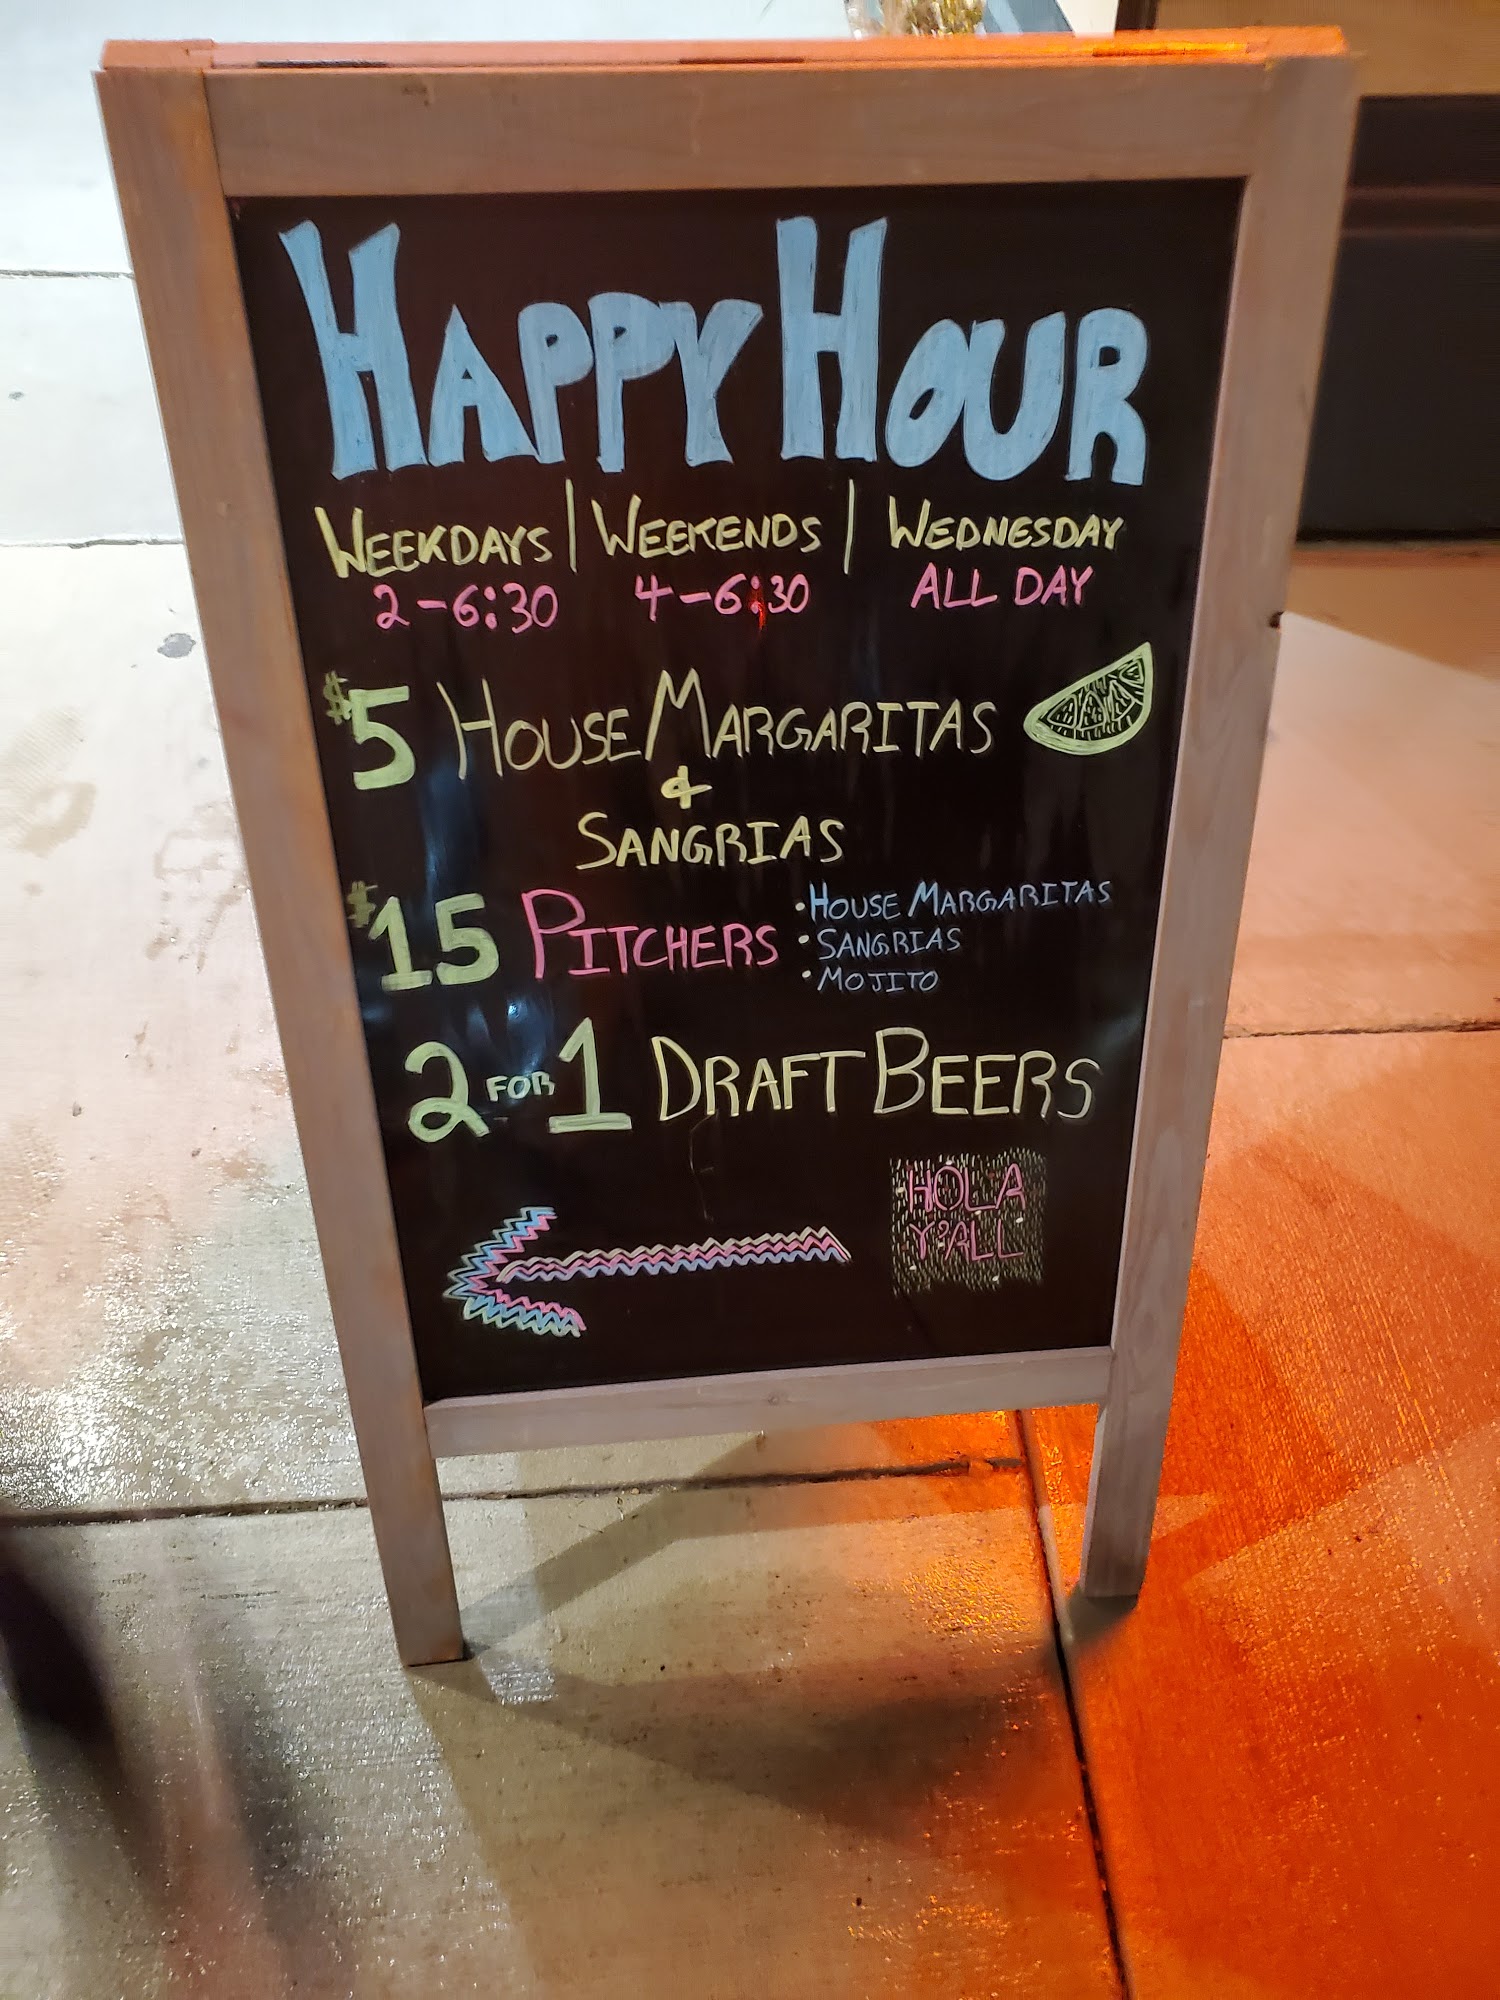 HAPPY HOUR
WEEKDAYS | WEEKENDS | WEDNESDAY
2-6:30 4-6:30 ALL DAY
$5 HOUSE MARGARITAS
&
SANGRIAS
$15 PITCHERS
• HOUSE MARGARITAS
• SANGRIAS
• MOJITO
2 FOR 1 DRAFT BEERS
HOLA
Y'ALL